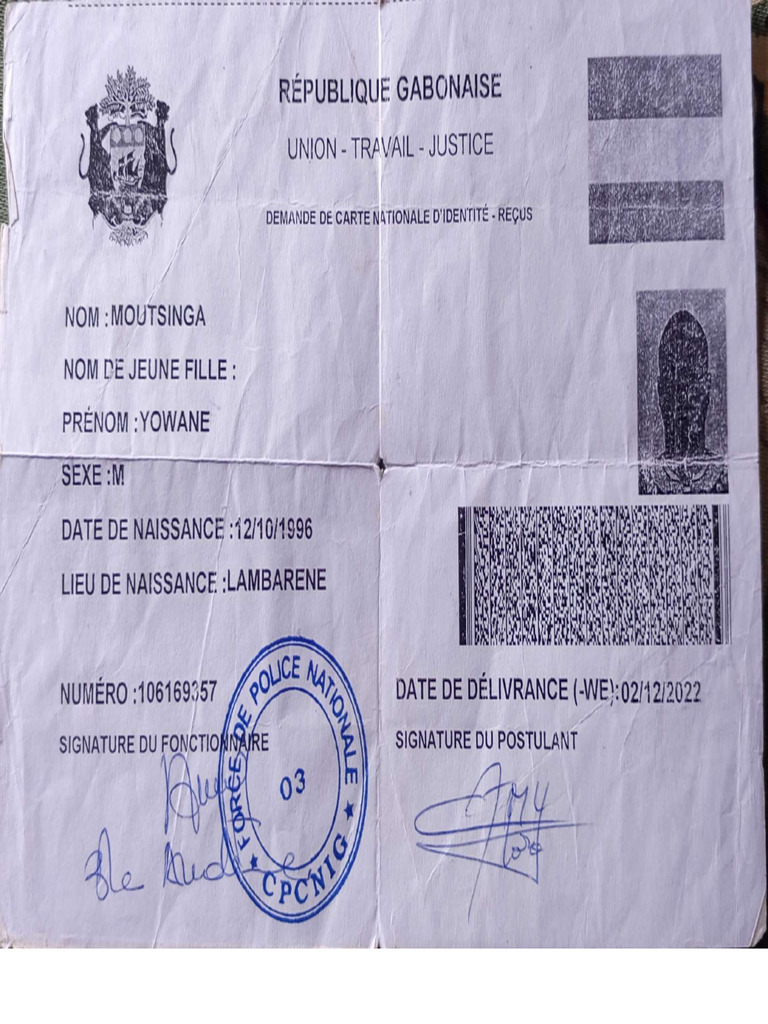 RÉPUBLIQUE GABONAISE
UNION - TRAVAIL - JUSTICE
DEMANDE DE CARTE NATIONALE D'IDENTITÉ - REÇUS
NOM :MOUTSINGA
NOM DE JEUNE FILLE :
PRÉNOM :YOWANE
SEXE :M
DATE DE NAISSANCE :12/10/1996
LIEU DE NAISSANCE :LAMBARENE
NUMÉRO :106169357
DATE DE DÉLIVRANCE (-WE):02/12/2022
SIGNATURE DU FONCTIONNAIRE
SIGNATURE DU POSTULANT
FORCE DE POLICE NATIONALE
03
CPCNIG